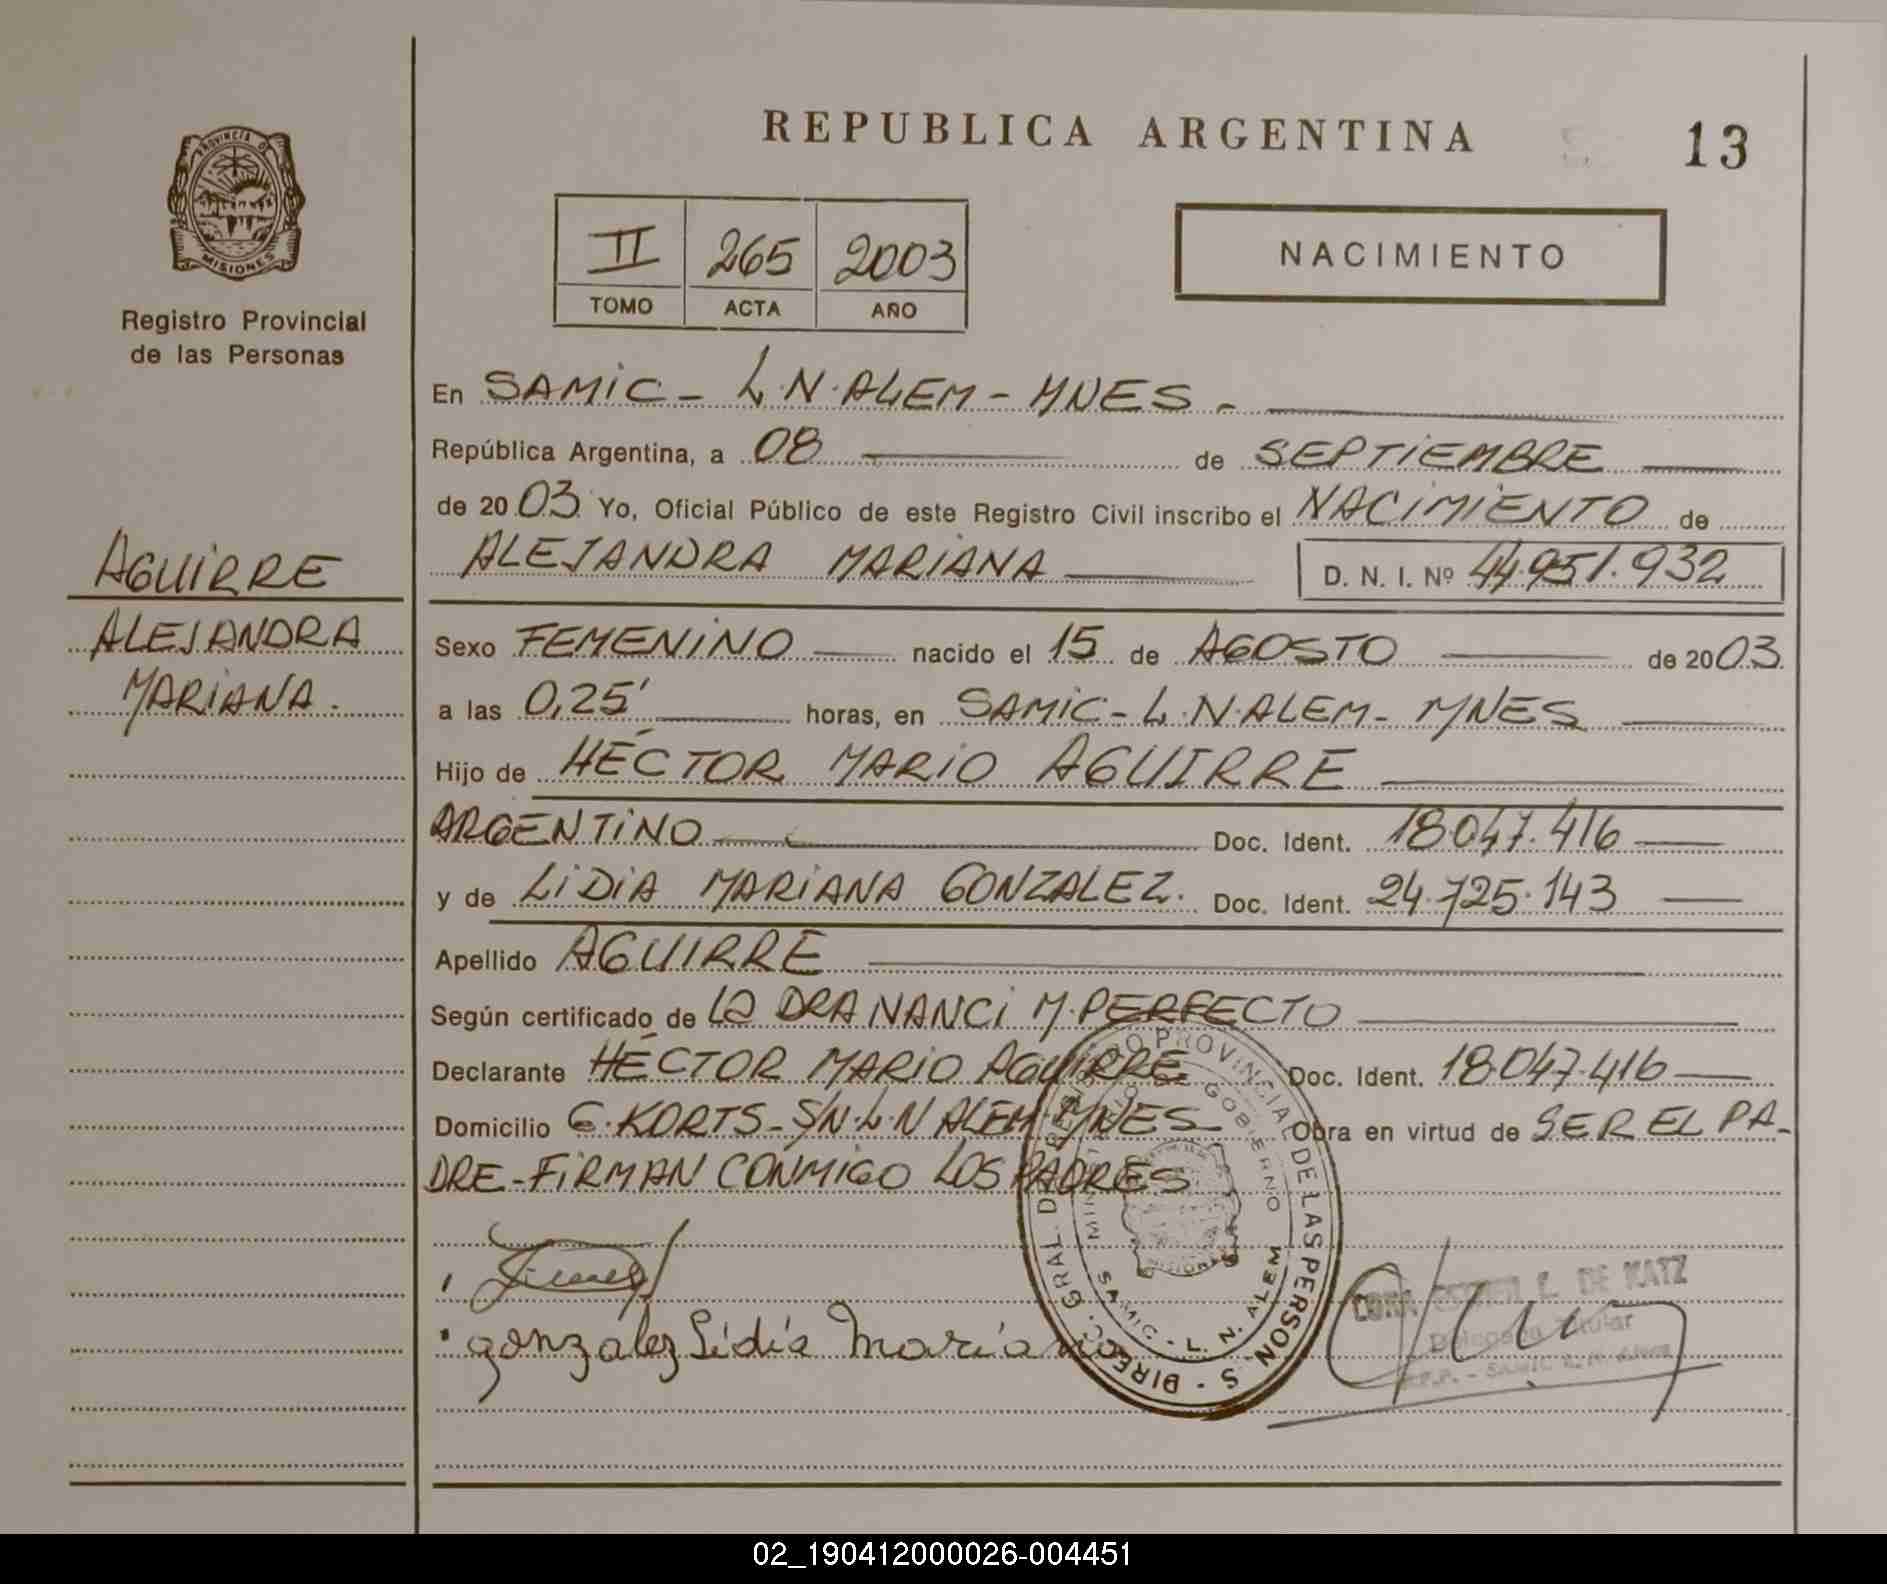 REPUBLICA ARGENTINA
13
PROVINCIA DE
MISIONES
Registro Provincial
de las Personas
II 265 2003
TOMO ACTA AÑO
NACIMIENTO
En SAMIC - L.N.ALEM - MNES -
República Argentina, a 08 de SEPTIEMBRE
de 2003 Yo, Oficial Público de este Registro Civil inscribo el NACIMIENTO de
ALEJANDRA MARIANA D. N. I. Nº 44.951.932
AGUIRRE
ALEJANDRA
MARIANA.
Sexo FEMENINO nacido el 15 de AGOSTO de 2003
a las 0,25' horas, en SAMIC - L.N.ALEM - MNES
Hijo de HÉCTOR MARIO AGUIRRE
ARGENTINO Doc. Ident. 18.047.416
y de LIDIA MARIANA GONZALEZ. Doc. Ident. 24.725.143
Apellido AGUIRRE
Según certificado de LA DRA NANCI M. PERFECTO
Declarante HÉCTOR MARIO AGUIRRE Doc. Ident. 18.047.416
Domicilio G. KORTS - S/N - L.N ALEM - MNES Obra en virtud de SER EL PA-
DRE - FIRMAN CONMIGO LOS PADRES
gonzález Lidia Mariana
DIRECC. GRAL. DE REGISTRO PROVINCIAL DE LAS PERSONAS
GOBIERNO
SAMIC - L. N. ALEM
DE KATZ
Delegada Titular
02_190412000026-004451